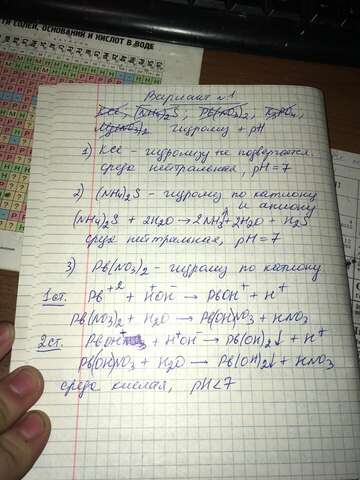 ТИ СОЛЕЙ, ОСНОВАНИЙ И КИСЛОТ В ВОДЕ
Вариант №1
KCl, (NH₄)₂S, Pb(NO₃)₂,
Mg(NO₃)₂ гидролиз + pH
1) KCl - гидролизу не подвергается.
среда нейтральная, pH = 7
2) (NH₄)₂S - гидролиз по катиону
и аниону
(NH₄)₂S + 2H₂O → 2NH₃↑ + 2H₂O + H₂S
среда нейтральная, pH = 7
3) Pb(NO₃)₂ - гидролиз по катиону
1 ст. Pb⁺² + H⁺OH⁻ → PbOH⁺ + H⁺
Pb(NO₃)₂ + H₂O → Pb(OH)NO₃ + HNO₃
2 ст. PbOH⁺ + H⁺OH⁻ → Pb(OH)₂↓ + H⁺
Pb(OH)NO₃ + H₂O → Pb(OH)₂↓ + HNO₃
среда кислая, pH < 7